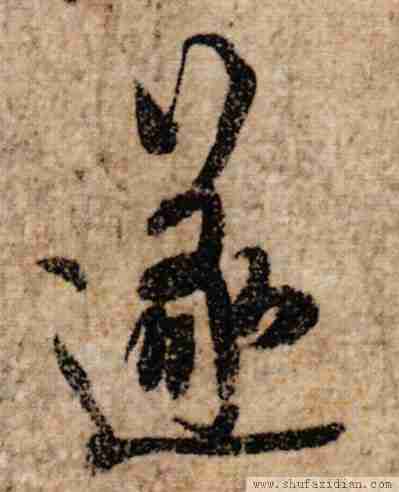 遂
www.shufazidian.com